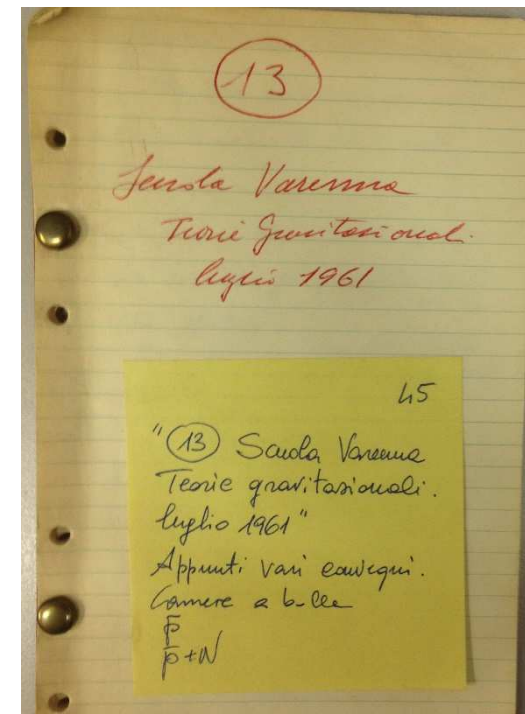 13
Scuola Varenna
Teorie Gravitazionali.
luglio 1961
45
"(13) Scuola Varenna
Teorie gravitazionali.
luglio 1961"
Appunti vari convegni.
Camere a bolle
p̄
p̄+N